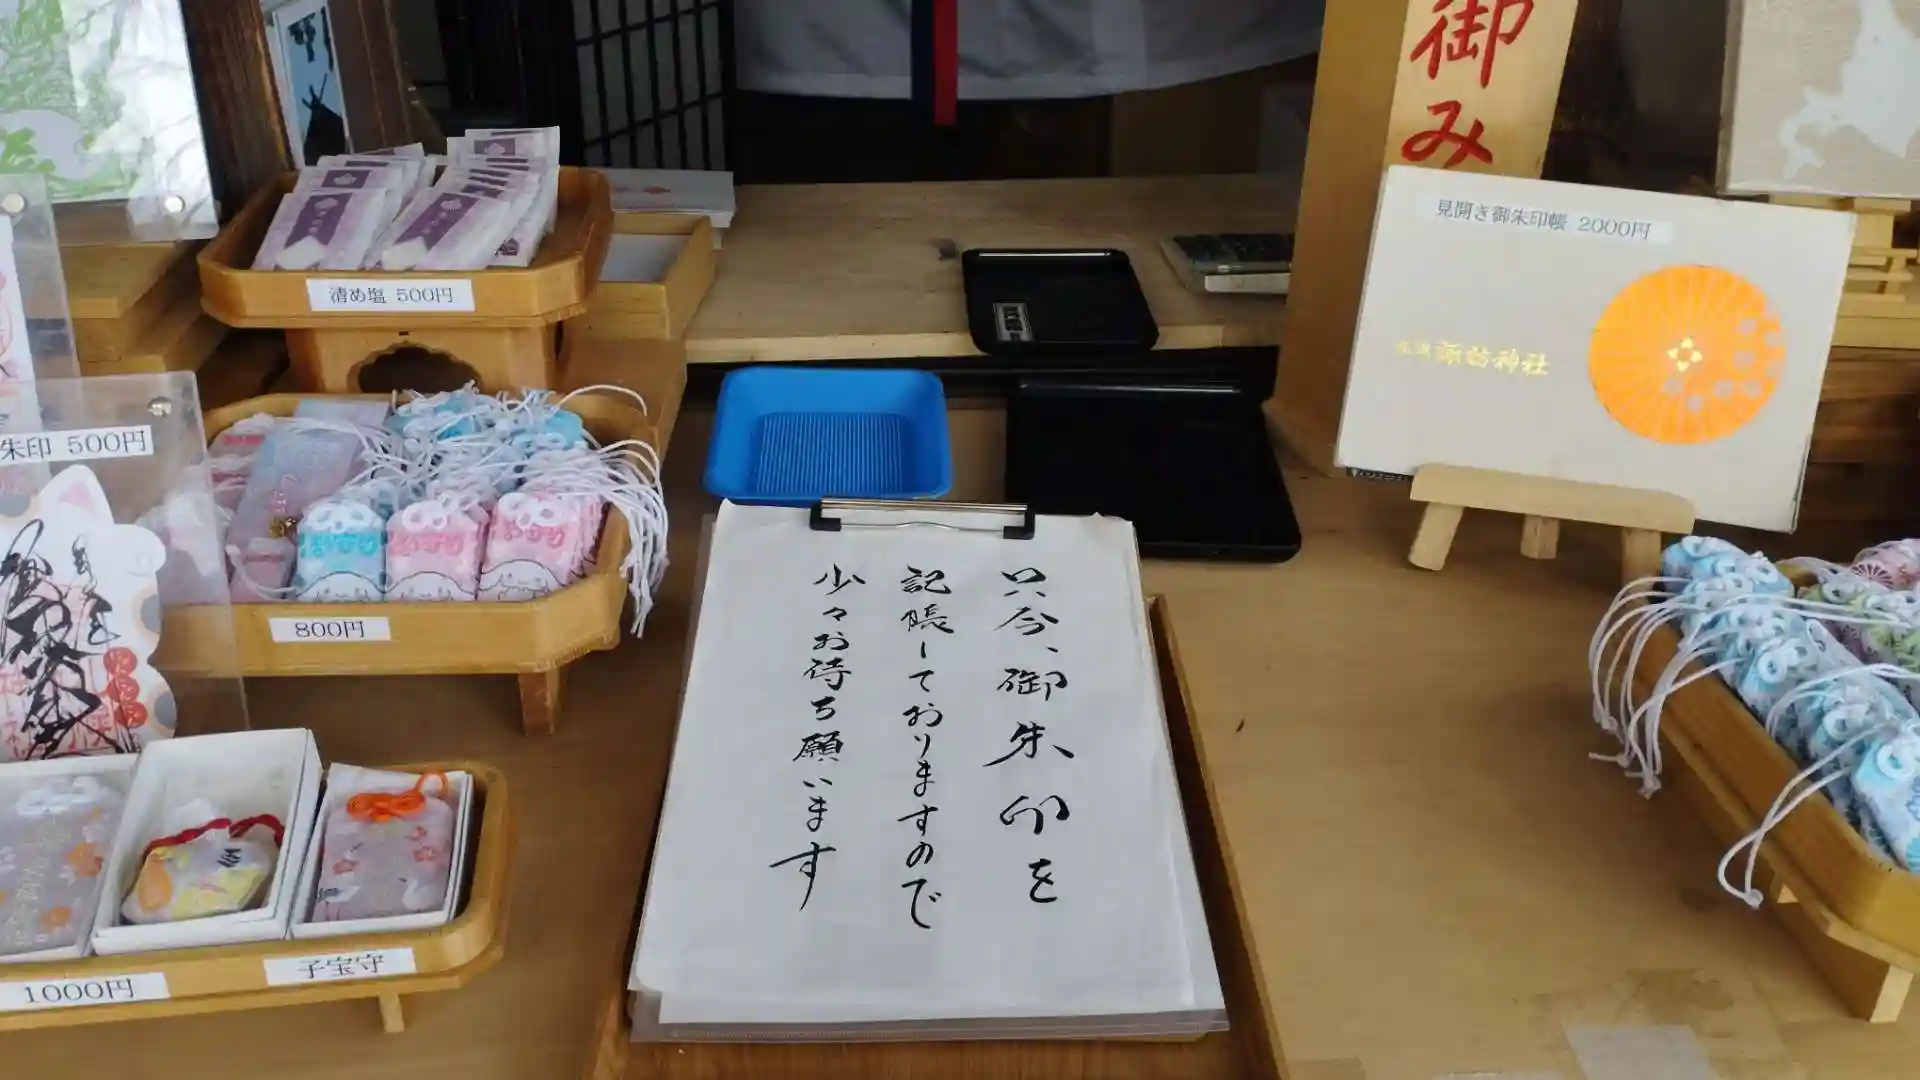 御み
見開き御朱印帳 2000円
諏訪神社
清め塩 500円
朱印 500円
800円
1000円
子宝守
只今、御朱印を
記帳しておりますので
少々お待ち願います